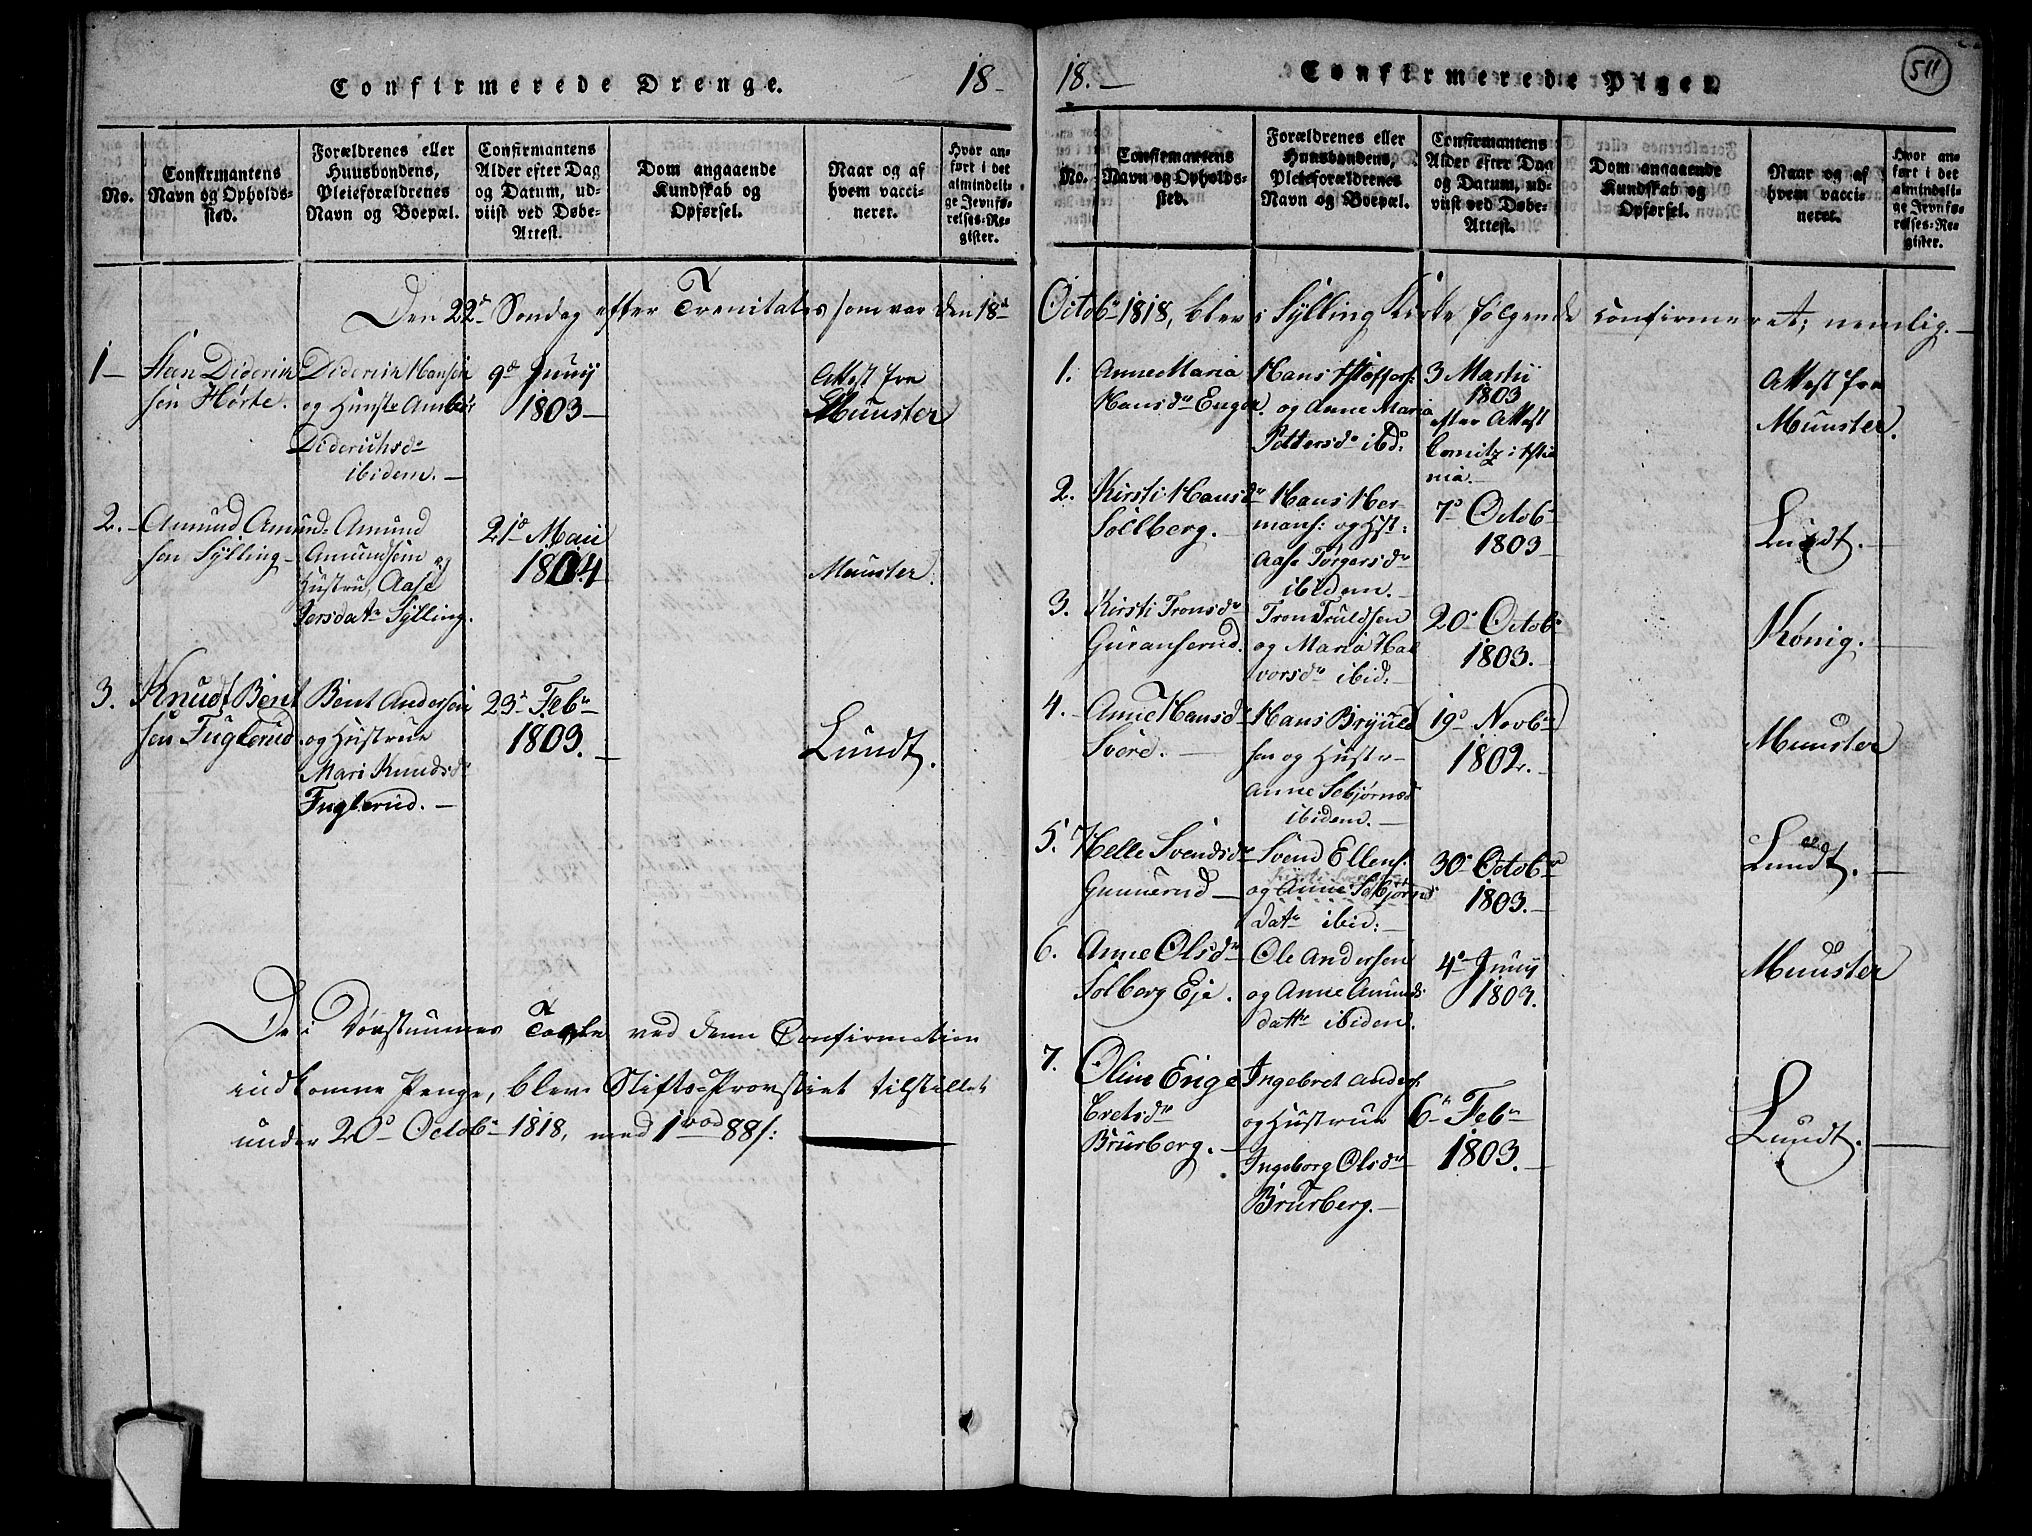 Confirmerede Drenge.
18-
No.
Confirmantens
Navn og Opholds-
sted.
Forældrenes eller
Huusbondens,
Pleieforældrenes
Navn og Boepæl.
Confirmantens
Alder efter Dag
og Datum, ud-
viist ved Døbe-
Attest.
Dom angaaende
Kundskab og
Opførsel.
Naar og af
hvem vacci-
neret.
Hvor an-
ført i det
almindeli-
ge Jevnfø-
relses-Re-
gister.
Den 22de Søndag efter Trenitatis som var den 18d
1- Steen Diderich
sen Hørte.
Diderich Hansen
og Hustr
Diderichsdr
ibidem. -
9de Junij
1803 -
Attest fra
Muuster
2. - Amund Amund-
sen Sylling -
Amund
Amundsen og
Hustru, Aase
Iversdatr Sylling.
21de Maii
1804
Muuster.
3. Knudt Bent
sen Fuglerud
Bent Andersen
og Hustrue
Mari Knudsdr
Fuglerud. -
23de Febr
1803. -
Lundt.
De i Taule ved denne Confirmation
indkomne Penge, bleve Stifts-Provstiet tilstillet
under 20de Octobr 1818, med 1 88 s:
18. -
Confirmerede Piger.
511
No.
Confirmantens
Navn og Opholds-
sted.
Forældrenes eller
Huusbondens,
Pleieforældrenes
Navn og Boepæl.
Confirmantens
Alder efter Dag
og Datum, ud-
viist ved Døbe-
Attest.
Dom angaaende
Kundskab og
Opførsel.
Naar og af
hvem vacci-
neret.
Hvor an-
ført i det
almindeli-
ge Jevnfø-
relses-Re-
gister.
Octobr 1818, blev i Sylling Kirke følgende confirmeret; nemlig. -
1. Anne Maria
Hansdr Enger.
Hans
og Anne Maria
Pettersdr ibd:
3 Martii
1803
efter Attest
Attest fra
Muuster.
2. Kirsti Hansdr
Sollberg.
Hans Her-
mans: og Hst:
Aase Torgersdr
ibidem. -
7de Octobr
1803 -
Lundt. -
3. Kirsti Tronsdr
Guranserud.
Tron Truldsen
og Maria Hal
vorsdr ibid: -
20de Octobr
1803. -
Kønig. -
4. - Anne Hansdr
Svere. -
Hans Brynild
sen og Hustr -
Anne Sebjørnsd
ibidem. -
19de Novbr
1802. -
Muuster
5. Helle Svendsdr
Gunnerud -
Svend Ellens:
og Anne Sebjørns
datr ibid: -
30de Octobr
1803. -
Lundt. -
6. Anne Olsdr
Solberg Eje.
Ole Andersen
og Anne Amunds
dattr ibidem.
4de Junij
1803.
Muuster
7. Oline Enge
bretsdr
Brurberg. -
Ingebret Anders:
og Hustrue
Ingeborg Olsdr
Brurberg. -
6te Febr
1803. -
Lundt. -